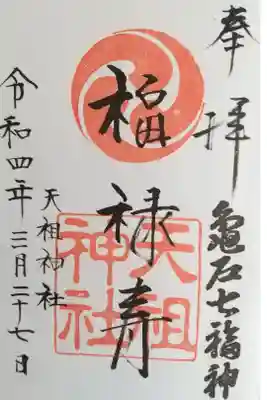 奉拝
亀石七福神
福禄寿
天祖神社
天祖神社
令和四年三月二十七日